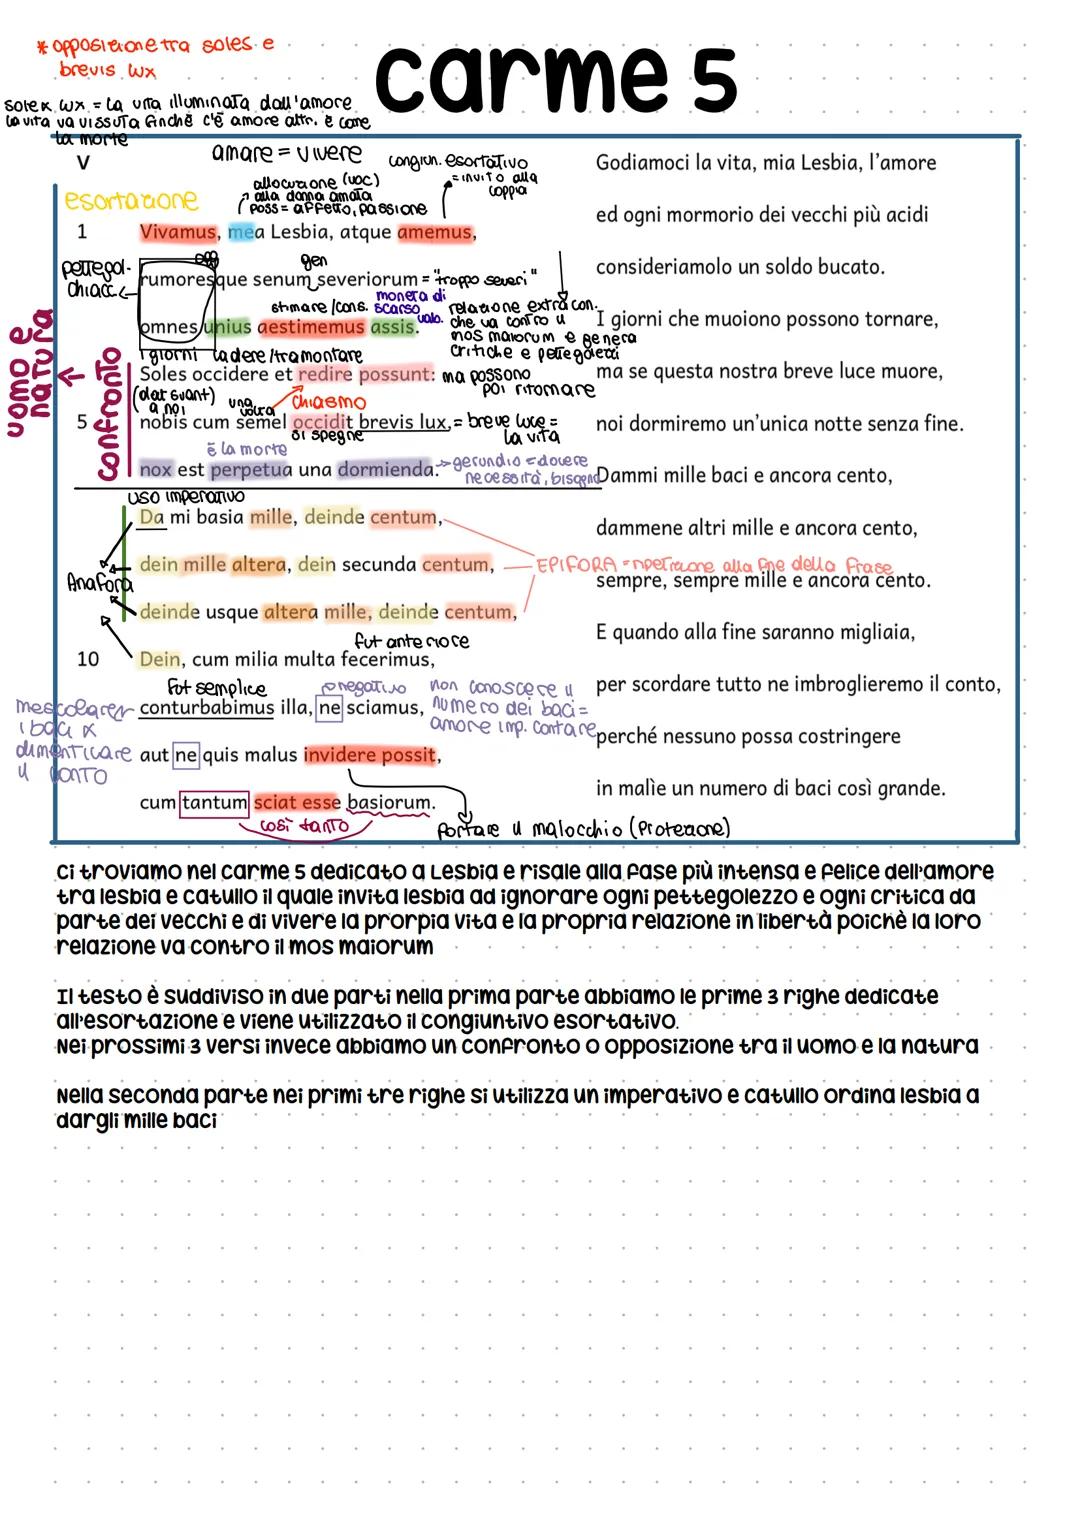 * opposizione tra soles e
brevis lux
carme 5
sole x lux = la vita illuminata dall'amore
la vita va vissuta finchè c'è amore altr. è come
la morte
V
amare = vivere
congiun. esortativo
= invito alla
coppia
allocuzione (voc)
alla donna amata
poss = affetto, passione
esortazione
1 Vivamus, mea Lesbia, atque amemus,
pettegol-
chiacc
ogg
gen
rumoresque senum severiorum = "troppo severi"
stimare / cons.
moneta di
scarso
valo.
omnes unius aestimemus assis.
relazione extra con.
che va contro il
mos maiorum e genera
critiche e pettegolezzi
uomo e
natura
confronto
i giorni
cadere/tramontare
Soles occidere et redire possunt: ma possono
poi ritornare
a noi
una
volta
chiasmo
5 nobis cum semel occidit brevis lux, = breve luce =
la vita
si spegne
è la morte
nox est perpetua una dormienda.
gerundio = dovere
necessità, bisogno
uso imperativo
Da mi basia mille, deinde centum,
dein mille altera, dein secunda centum,
EPIFORA = ripetizione alla fine della frase
Anafora
deinde usque altera mille, deinde centum,
fut anteriore
10 Dein, cum milia multa fecerimus,
fut semplice
negativo
non conoscere il
numero dei baci =
amore imp. contare
mescolarer
i baci x
dimenticare
il conto
conturbabimus illa, ne sciamus,
aut ne quis malus invidere possit,
cum tantum sciat esse basiorum.
così tanto
portare il malocchio (protezione)
Godiamoci la vita, mia Lesbia, l'amore
ed ogni mormorio dei vecchi più acidi
consideriamolo un soldo bucato.
I giorni che muoiono possono tornare,
ma se questa nostra breve luce muore,
noi dormiremo un'unica notte senza fine.
Dammi mille baci e ancora cento,
dammene altri mille e ancora cento,
sempre, sempre mille e ancora cento.
E quando alla fine saranno migliaia,
per scordare tutto ne imbroglieremo il conto,
perché nessuno possa costringere
in malìe un numero di baci così grande.
Ci troviamo nel carme 5 dedicato a Lesbia e risale alla fase più intensa e felice dell'amore
tra lesbia e catullo il quale invita lesbia ad ignorare ogni pettegolezzo e ogni critica da
parte dei vecchi e di vivere la prorpia vita e la propria relazione in libertà poichè la loro
relazione va contro il mos maiorum
Il testo è suddiviso in due parti nella prima parte abbiamo le prime 3 righe dedicate
all'esortazione e viene utilizzato il congiuntivo esortativo.
Nei prossimi 3 versi invece abbiamo un confronto o opposizione tra il uomo e la natura
Nella seconda parte nei primi tre righe si utilizza un imperativo e catullo ordina lesbia a
dargli mille baci